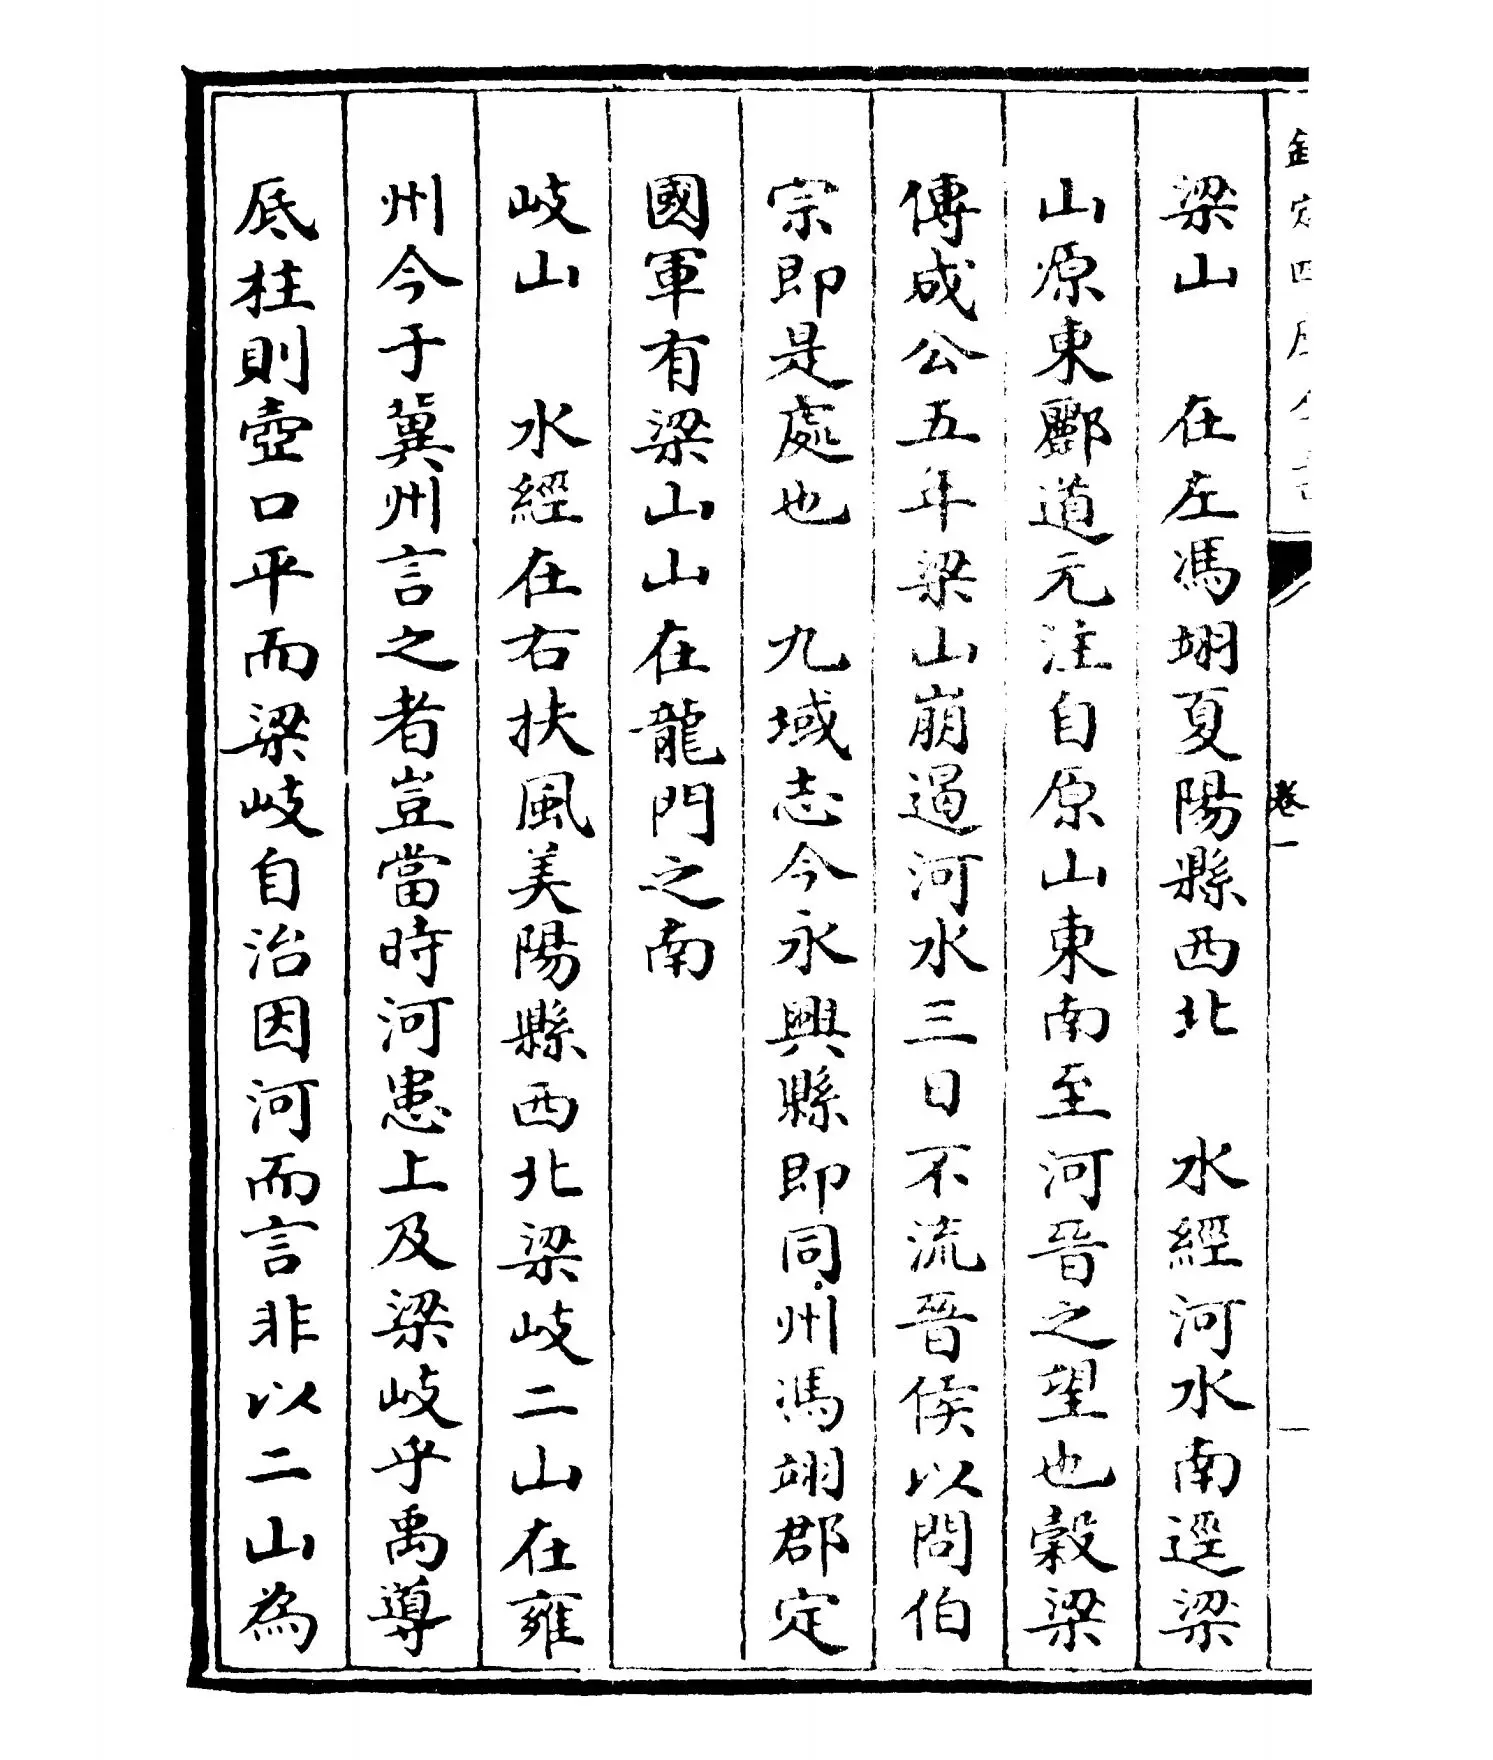 欽定四庫全書
卷一
梁山 在左馮翊夏陽縣西北 水經河水南逕梁
山原東酈道元注自原山東南至河晉之望也榖梁
傳成公五年梁山崩遏河水三日不流晉侯以問伯
宗即是處也 九域志今永興縣即同州馮翊郡定
國軍有梁山山在龍門之南
岐山 水經在右扶風美陽縣西北梁岐二山在雍
州今于冀州言之者豈當時河患上及梁岐乎禹導
厎柱則壺口平而梁岐自治因河而言非以二山為